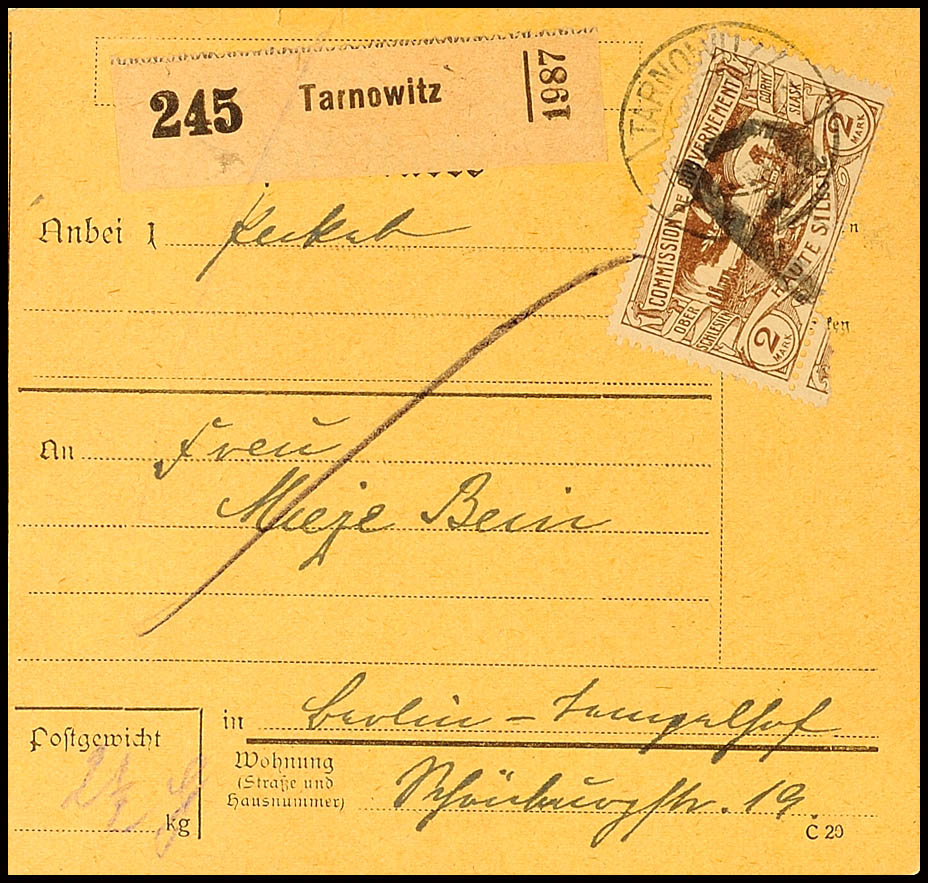 245 Tarnowitz 1987
TARNOWITZ
COMMISSION DE GOUVERNEMENT
HAUTE SILÉSIE
GORNY SLASK
2 MARK
OBER SCHLESIEN
2 MARK
Anbei 1 Paket
An Frau
Mieze Bein
in Berlin-Tempelhof
Postgewicht
kg
Wohnung
(Straße und
Hausnummer)
Schönburgstr. 19
C 20